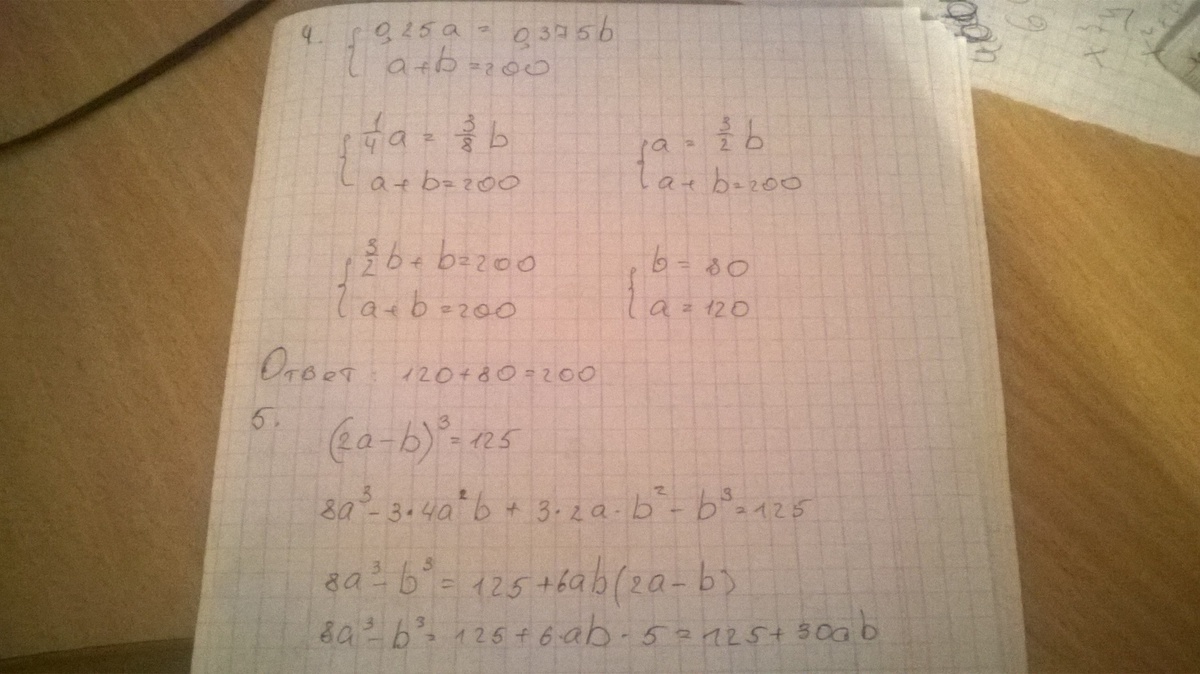 4. { 0,25a = 0,375b
a + b = 200
{ 1/4 a = 3/8 b
a + b = 200
{ a = 3/2 b
a + b = 200
{ 3/2 b + b = 200
a + b = 200
{ b = 80
a = 120
Ответ: 120 + 80 = 200
5.
(2a - b)³ = 125
8a³ - 3·4a²b + 3·2a·b² - b³ = 125
8a³ - b³ = 125 + 6ab(2a - b)
8a³ - b³ = 125 + 6·ab·5 = 125 + 30ab